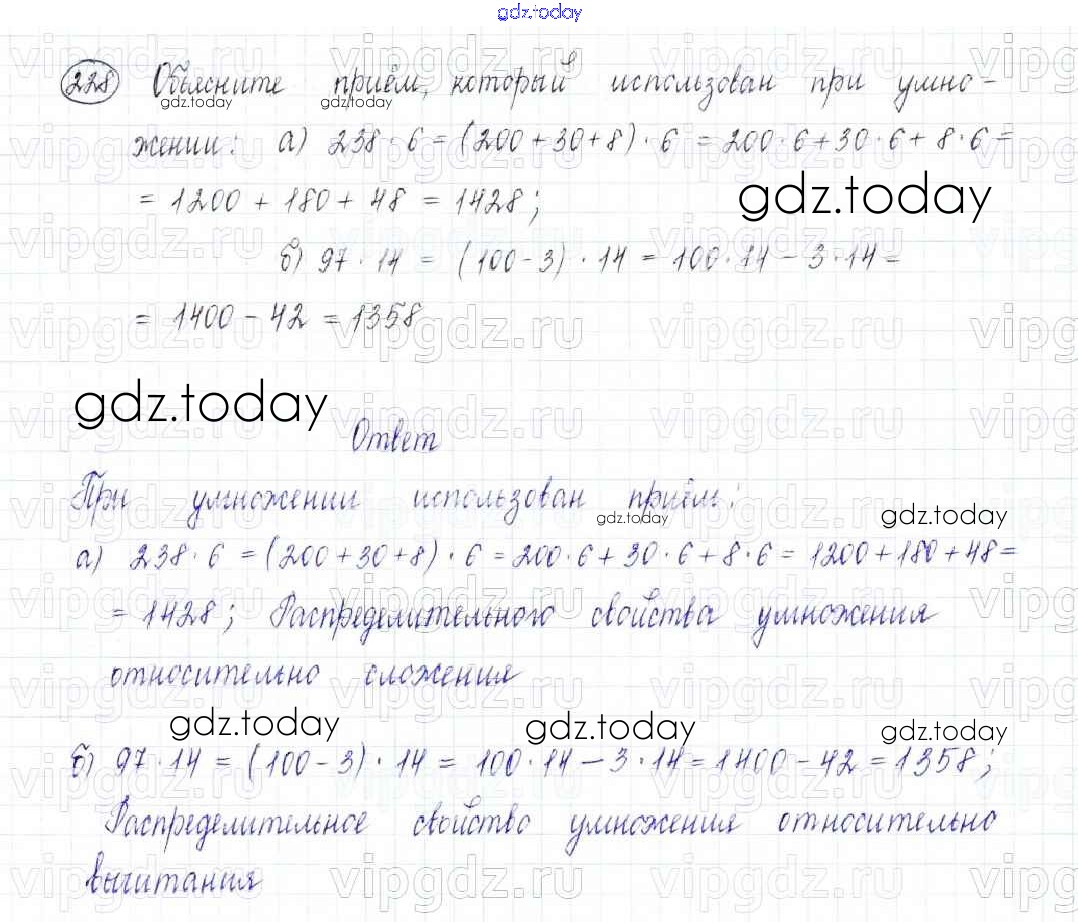 gdz.today
228 Объясните приём, который использован при умно-
gdz.today gdz.today
жении: а) 238·6 = (200+30+8)·6 = 200·6+30·6+8·6 =
= 1200 + 180 + 48 = 1428;
gdz.today
б) 97·14 = (100-3)·14 = 100·14 - 3·14 =
= 1400 - 42 = 1358
vipgdz.ru
gdz.today
Ответ
При умножении использован приём:
gdz.today gdz.today
а) 238·6 = (200+30+8)·6 = 200·6+30·6+8·6 = 1200+180+48 =
= 1428; Распределительного свойства умножения
относительно сложения
gdz.today gdz.today gdz.today
б) 97·14 = (100-3)·14 = 100·14-3·14 = 1400-42 = 1358;
Распределительное свойство умножения относительно
вычитания